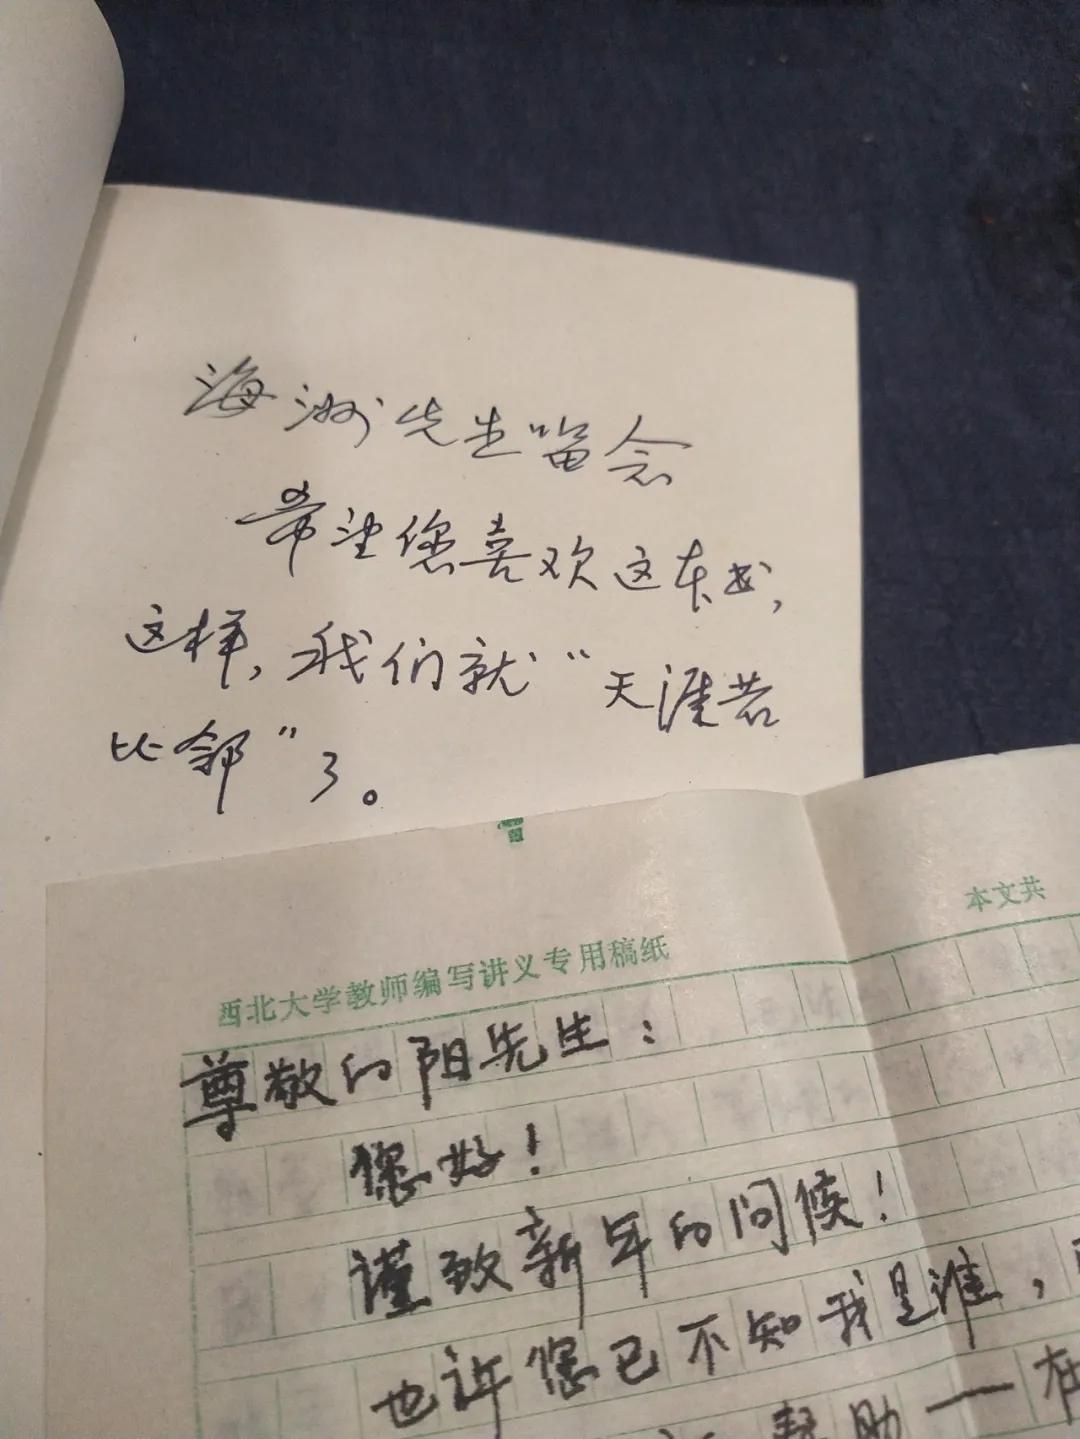 海洲先生留念
希望您喜欢这本书，
这样，我们就“天涯若
比邻”了。
本文共
西北大学教师编写讲义专用稿纸
尊敬的阳先生：
您好！
谨致新年的问候！
也许您已不知我是谁，
帮助——在